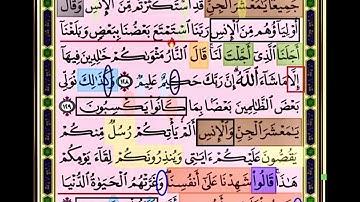 جَمِيعًا يَٰمَعْشَرَ ٱلْجِنِّ قَدِ ٱسْتَكْثَرْتُم مِّنَ ٱلْإِنسِ وَقَالَ
أَوْلِيَآؤُهُم مِّنَ ٱلْإِنسِ رَبَّنَا ٱسْتَمْتَعَ بَعْضُنَا بِبَعْضٍ وَبَلَغْنَآ
أَجَلَنَا ٱلَّذِىٓ أَجَّلْتَ لَنَا قَالَ ٱلنَّارُ مَثْوَىٰكُمْ خَٰلِدِينَ فِيهَآ
إِلَّا مَا شَآءَ ٱللَّهُ إِنَّ رَبَّكَ حَكِيمٌ عَلِيمٌ ١٢٨ وَكَذَٰلِكَ نُوَلِّى
بَعْضَ ٱلظَّٰلِمِينَ بَعْضًۢا بِمَا كَانُوا۟ يَكْسِبُونَ ١٢٩
يَٰمَعْشَرَ ٱلْجِنِّ وَٱلْإِنسِ أَلَمْ يَأْتِكُمْ رُسُلٌ مِّنكُمْ
يَقُصُّونَ عَلَيْكُمْ ءَايَٰتِى وَيُنذِرُونَكُمْ لِقَآءَ يَوْمِكُمْ
هَٰذَا قَالُوا۟ شَهِدْنَا عَلَىٰٓ أَنفُسِنَا وَغَرَّتْهُمُ ٱلْحَيَوٰةُ ٱلدُّنْيَا